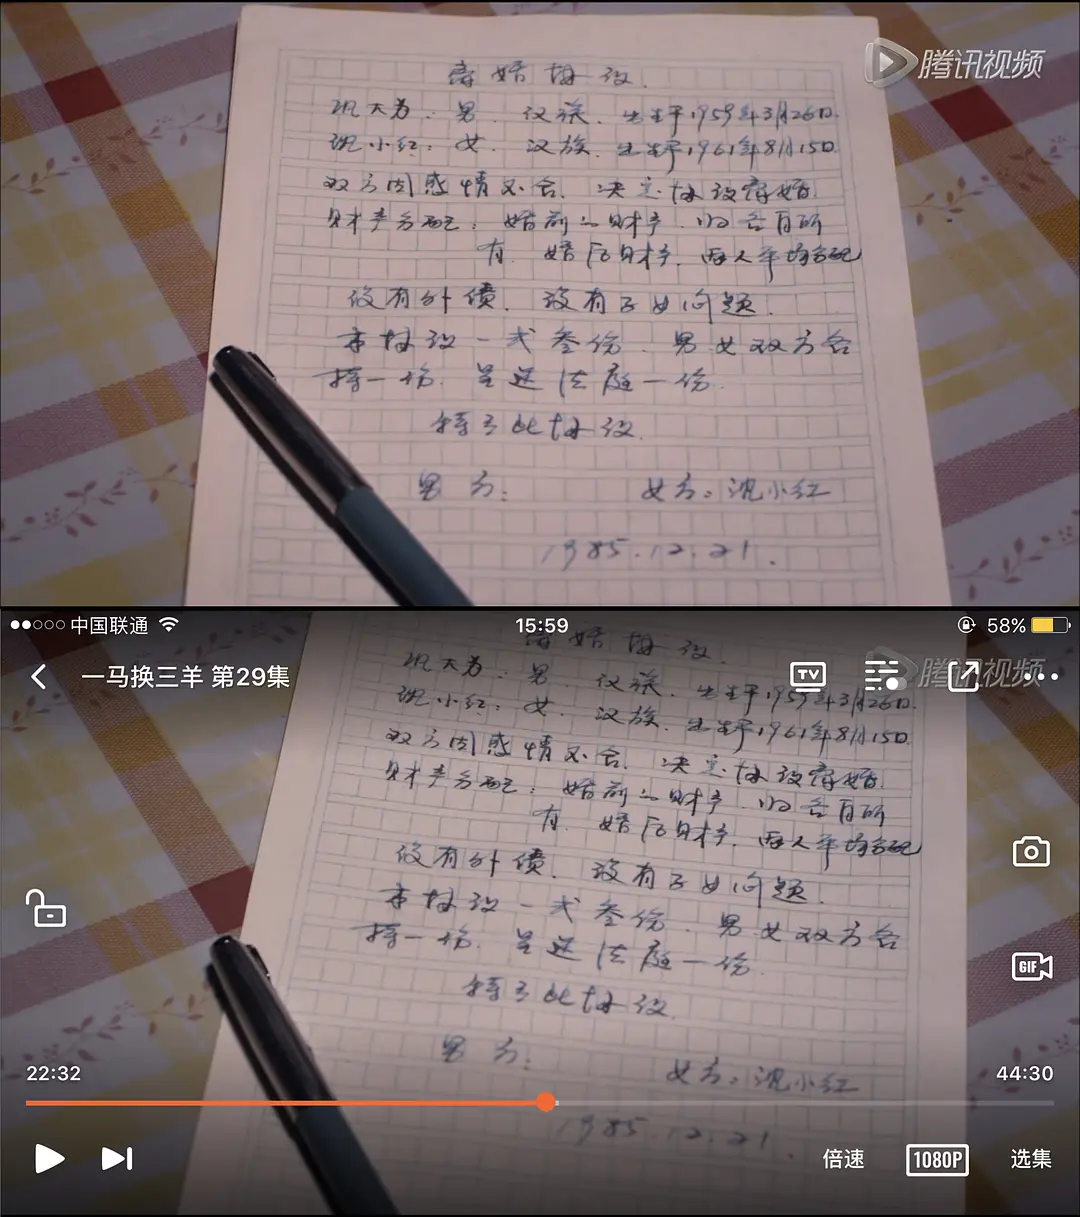 离婚协议.
腾讯视频
巩大为:男.汉族.生于1959年3月26日.
沈小红:女.汉族.生于1961年8月15日.
双方因感情不合.决定协议离婚.
财产分配:婚前的财产.归各自所
有.婚后财产.两人平均分配
没有外债.没有子女问题.
本协议一式叁份.男女双方各
持一份.呈送法庭一份.
特立此协议.
男方: 女方:沈小红
1985.12.21.
中国联通 15:59 58%
离婚协议.
一马换三羊 第29集 TV 腾讯视频
巩大为:男.汉族.生于1959年3月26日.
沈小红:女.汉族.生于1961年8月15日.
双方因感情不合.决定协议离婚.
财产分配:婚前的财产.归各自所
有.婚后财产.两人平均分配
没有外债.没有子女问题.
本协议一式叁份.男女双方各
持一份.呈送法庭一份.
GIF
特立此协议.
男方: 女方:沈小红
22:32 44:30
1985.12.21
倍速 1080P 选集